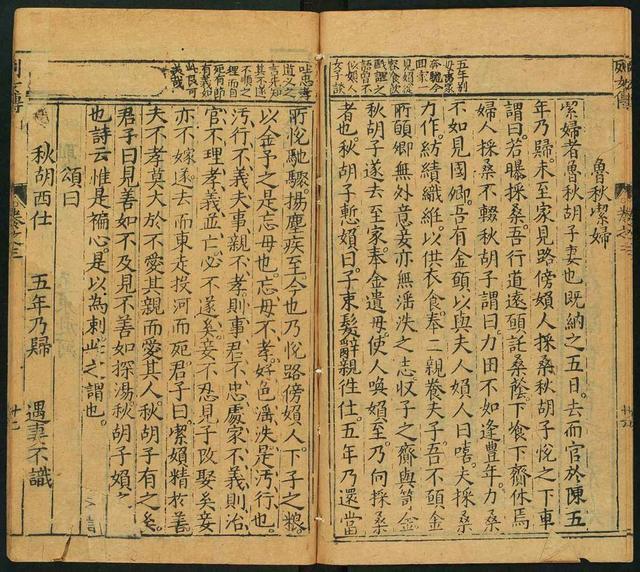 魯秋潔婦
潔婦者魯秋胡子妻也既納之五日去而官於陳五
年乃歸未至家見路傍婦人採桑秋胡子悅之下車
謂曰若曝採桑吾行道遠願託桑蔭下飡下齎休焉
婦人採桑不輟秋胡子謂曰力田不如逢豐年力桑
不如見國卿吾有金願以與夫人婦人曰嘻夫採桑
力作紡績織紝以供衣食奉二親養夫子吾不願金
所願卿無外意妾亦無淫泆之志収子之齎與笥金
秋胡子遂去至家奉金遺母使人喚婦至乃向採桑
者也秋胡子慙婦曰子束髮辭親徃仕五年乃還當
所悅馳驟揚塵疾至今也乃悅路傍婦人下子之粮
以金予之是忘母也忘母不孝好色淫泆是汚行也
汚行不義夫事親不孝則事君不忠處家不義則治
官不理孝義並亡必不遂矣妾不忍見子改娶矣妾
亦不嫁遂去而東走投河而死君子曰潔婦精於善
夫不孝莫大於不愛其親而愛其人秋胡子有之矣
君子曰見善如不及見不善如探湯秋胡子婦之
也詩云惟是褊心是以為刺此之謂也
頌曰
秋胡西仕 五年乃歸 遇妻不識